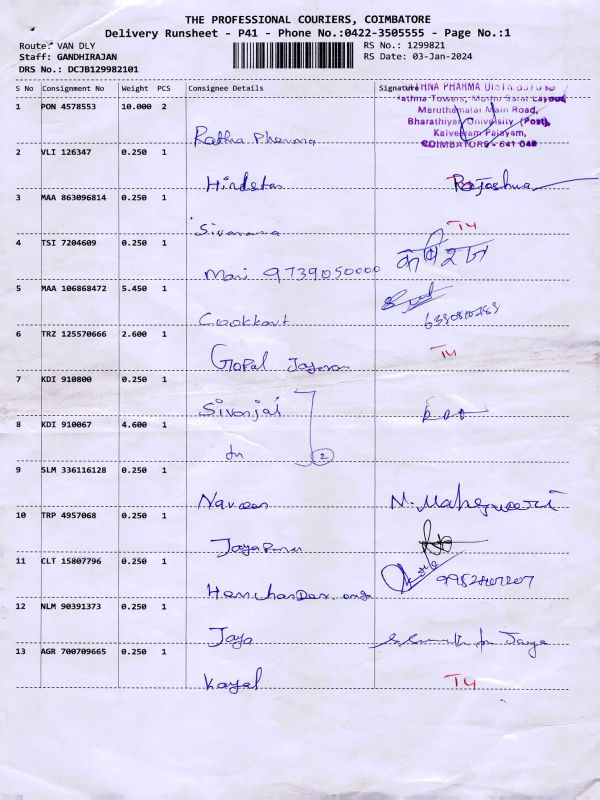 THE PROFESSIONAL COURIERS, COIMBATORE
Delivery Runsheet - P41 - Phone No.:0422-3505555 - Page No.:1
Route: VAN DLY
RS No.: 1299821
Staff: GANDHIRAJAN
RS Date: 03-Jan-2024
DRS No.: DCJB129982101
S No Consignment No Weight PCS Consignee Details Signature
1 PON 4578553 10.000 2
Ratna Towers, Mothi Balaji Layout,
Maruthamalai Main Road,
Bharathiyar University (Post),
Kalveeram Palayam,
COIMBATORE - 641 046
Rathna Pharma
2 VLI 126347 0.250 1
Hindstan
3 MAA 863096814 0.250 1
T4
4 TSI 7204609 0.250 1
Mani 9739050000
5 MAA 106868472 5.450 1
6 TRZ 125570666 2.600 1
Gopal T4
7 KDI 910800 0.250 1
8 KDI 910067 4.600 1
2
9 SLM 336116128 0.250 1
Naveen M. Maheswari
10 TRP 4957068 0.250 1
11 CLT 15807796 0.250 1
12 NLM 90391373 0.250 1
Jaya Jaya
13 AGR 700709665 0.250 1
Kayal T4